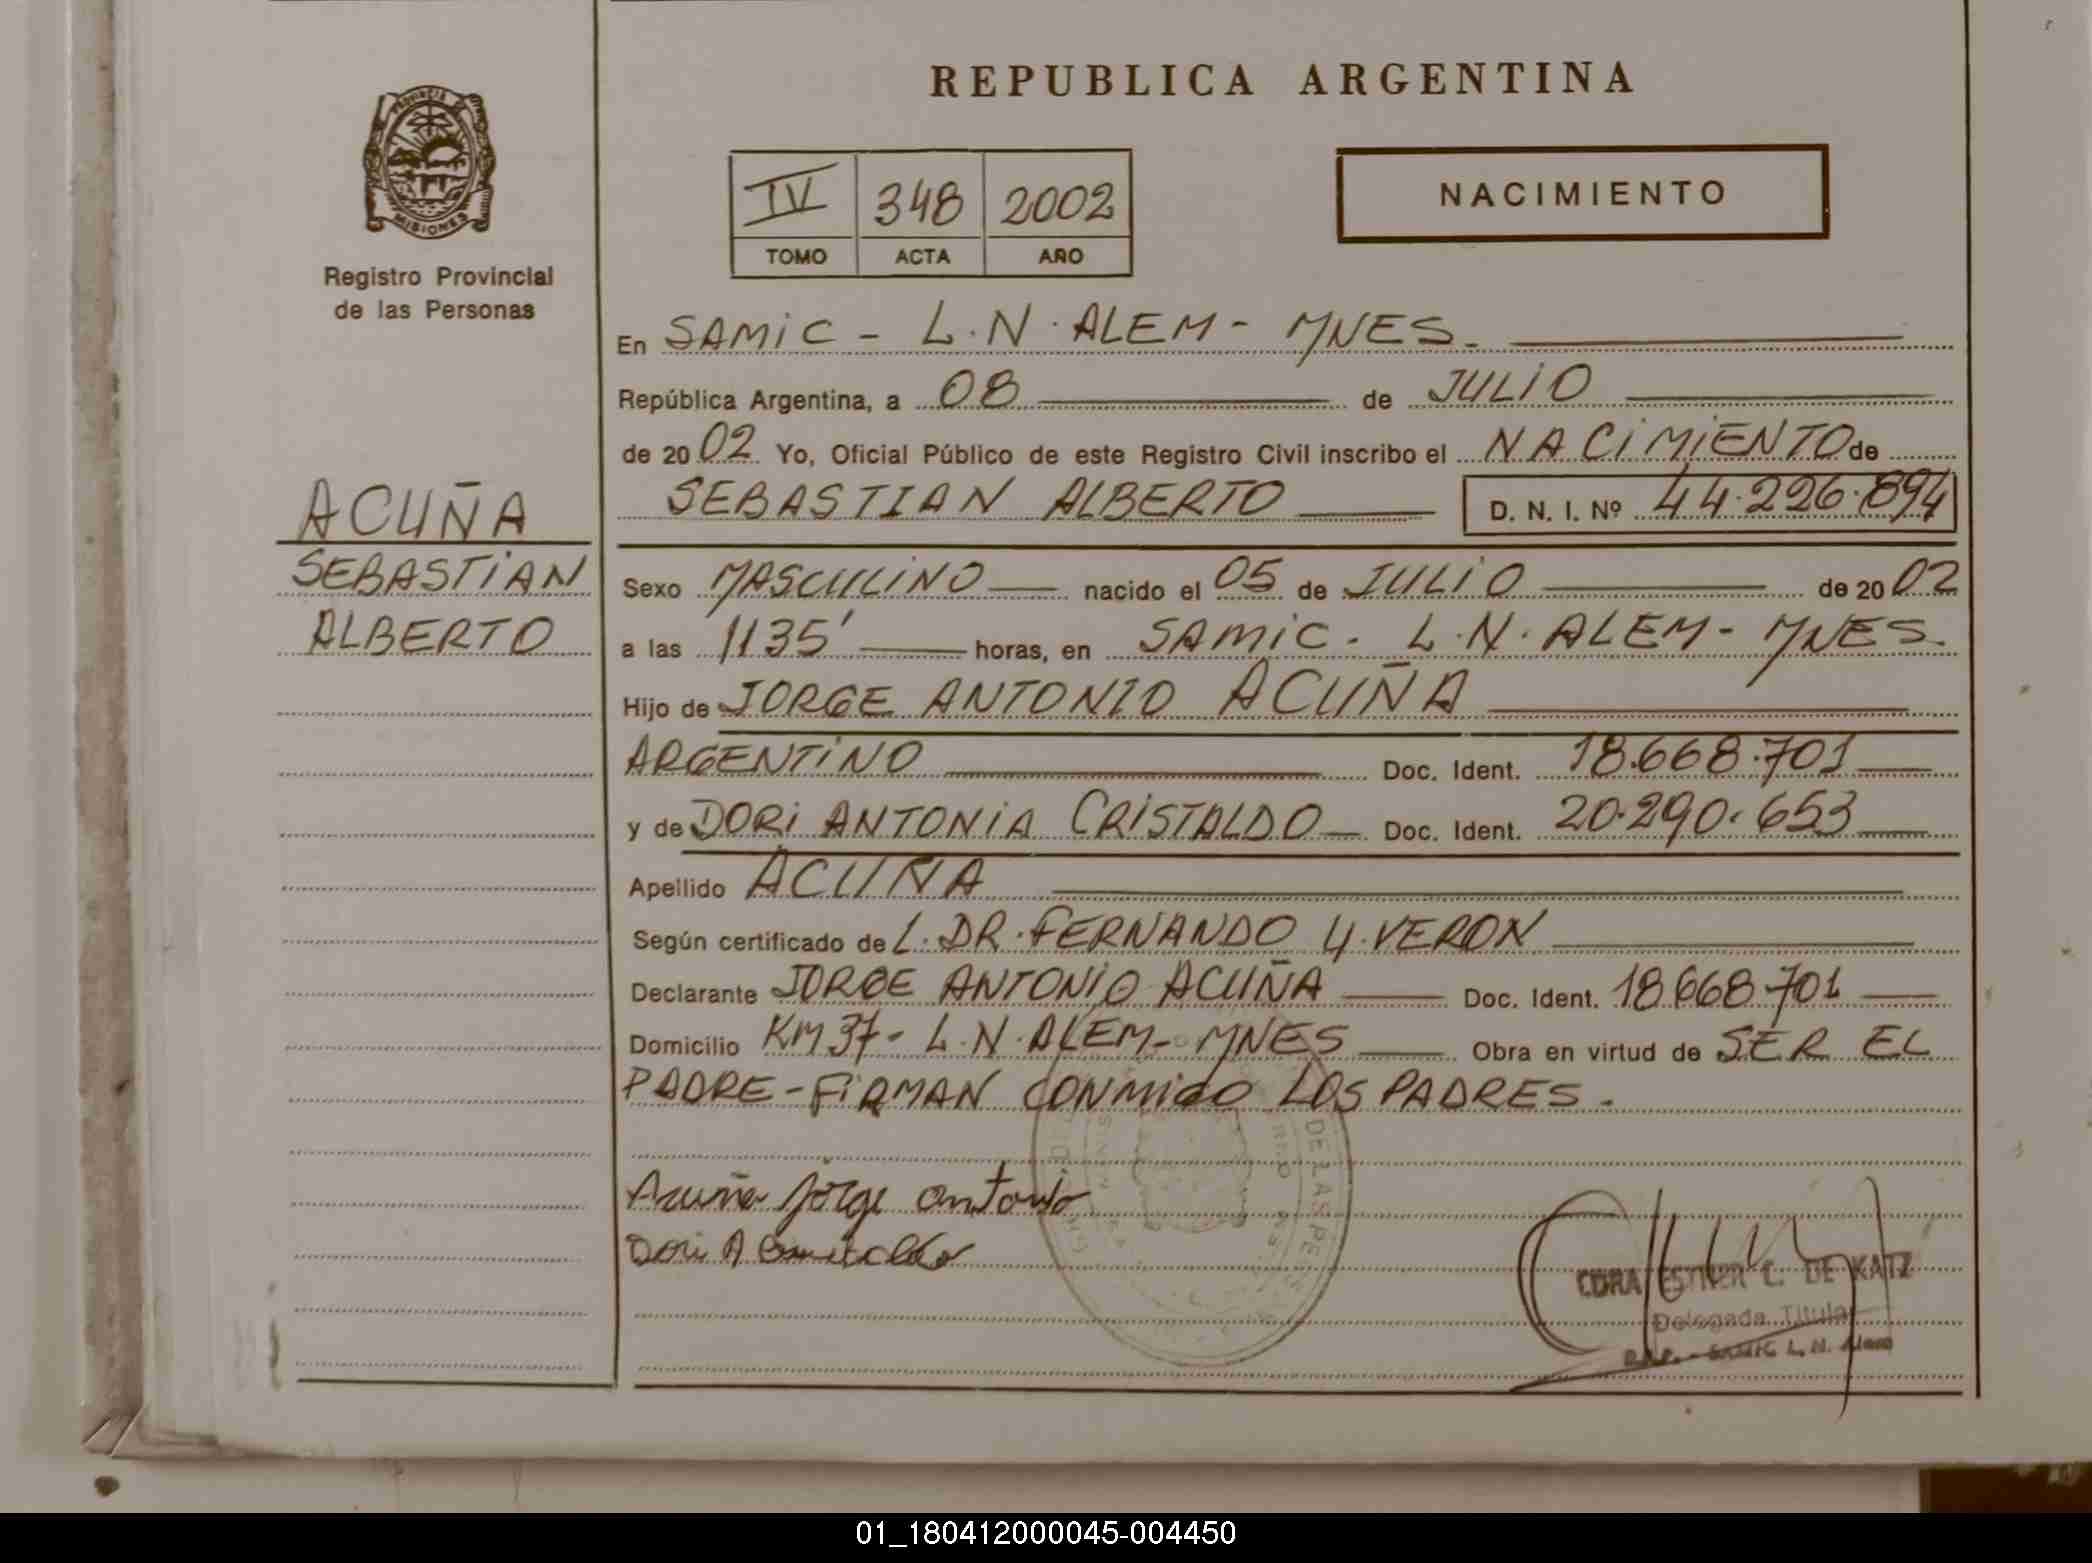 REPUBLICA ARGENTINA
PROVINCIA DE
MISIONES
Registro Provincial
de las Personas
IV 348 2002
TOMO ACTA AÑO
NACIMIENTO
En SAMIC - L.N. ALEM - MNES.
República Argentina, a 08 de JULIO
de 20 02 Yo, Oficial Público de este Registro Civil inscribo el NACIMIENTO de
SEBASTIAN ALBERTO D. N. I. Nº 44.226.894
ACUÑA
SEBASTIAN
ALBERTO
Sexo MASCULINO nacido el 05 de JULIO de 20 02
a las 1135' horas, en SAMIC - L.N. ALEM - MNES.
Hijo de JORGE ANTONIO ACUÑA
ARGENTINO Doc. Ident. 18.668.701
y de DORI ANTONIA CRISTALDO Doc. Ident. 20.290.653
Apellido ACUÑA
Según certificado de L. DR. FERNANDO Y. VERON
Declarante JORGE ANTONIO ACUÑA Doc. Ident. 18.668.701
Domicilio KM 37 - L.N. ALEM - MNES Obra en virtud de SER EL
PADRE - FIRMAN CONMIGO LOS PADRES.
Acuña Jorge antonio
Dori A
DE LAS PE
CORA ESTHER C. DE KATZ
Delegada Titular
R.P.P. - SAMIC L. N. Alem
01_180412000045-004450